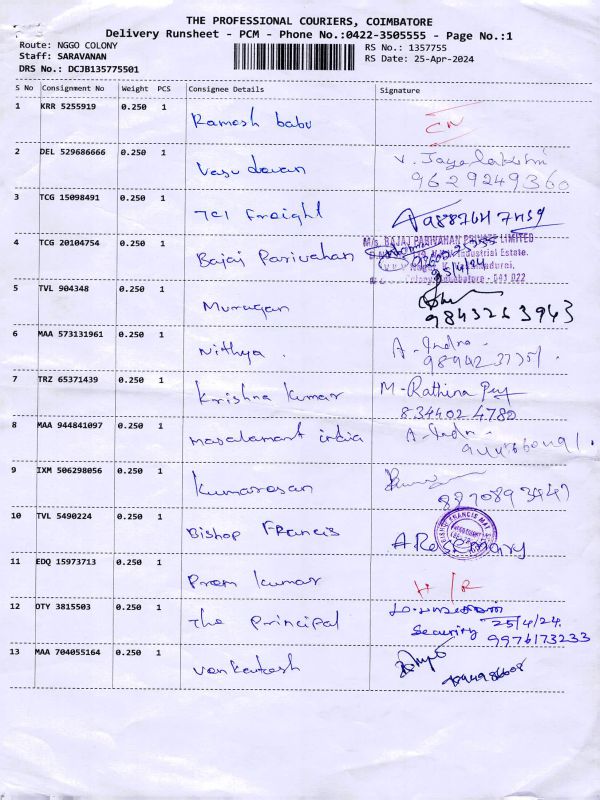 THE PROFESSIONAL COURIERS, COIMBATORE
Delivery Runsheet - PCM - Phone No.:0422-3505555 - Page No.:1
Route: NGGO COLONY
RS No.: 1357755
Staff: SARAVANAN
RS Date: 25-Apr-2024
DRS No.: DCJB135775501
S No Consignment No Weight PCS Consignee Details Signature
1 KRR 5255919 0.250 1 Ramesh babu CN
2 DEL 529686666 0.250 1 Vasudevan V. Jayalakshmi
9629249360
3 TCG 15098491 0.250 1 TCI Freight
4 TCG 20104754 0.250 1 Bajaj Parivahan
M/s. BAJAJ PARIVAHAN PRIVATE LIMITED
Industrial Estate.
25/4/24
641 022
5 TVL 904348 0.250 1 Murugan
9843253943
6 MAA 573131961 0.250 1 Nithya. A-Indra.
7 TRZ 65371439 0.250 1 Krishna kumar M-Rathina
834402 4780
8 MAA 944841097 0.250 1 masalamart india A-Indra.
9 IXM 506298056 0.250 1 Kumarasan
8870893447
10 TVL 5490224 0.250 1 Bishop Francis A Rosemary
11 EDQ 15973713 0.250 1 Prem kumar H/R
12 OTY 3815503 0.250 1 The Principal
25/4/24.
Security 9976173233
13 MAA 704055164 0.250 1 Venkatesh